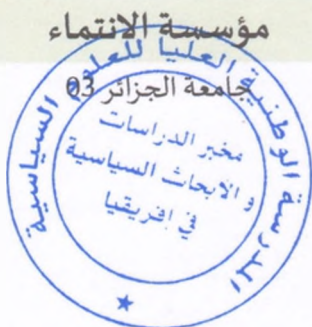 مؤسسة الانتماء
جامعة الجزائر 03
المدرسة الوطنية العليا للعلوم السياسية
مخبر الدراسات
و الابحاث السياسية
في افريقيا